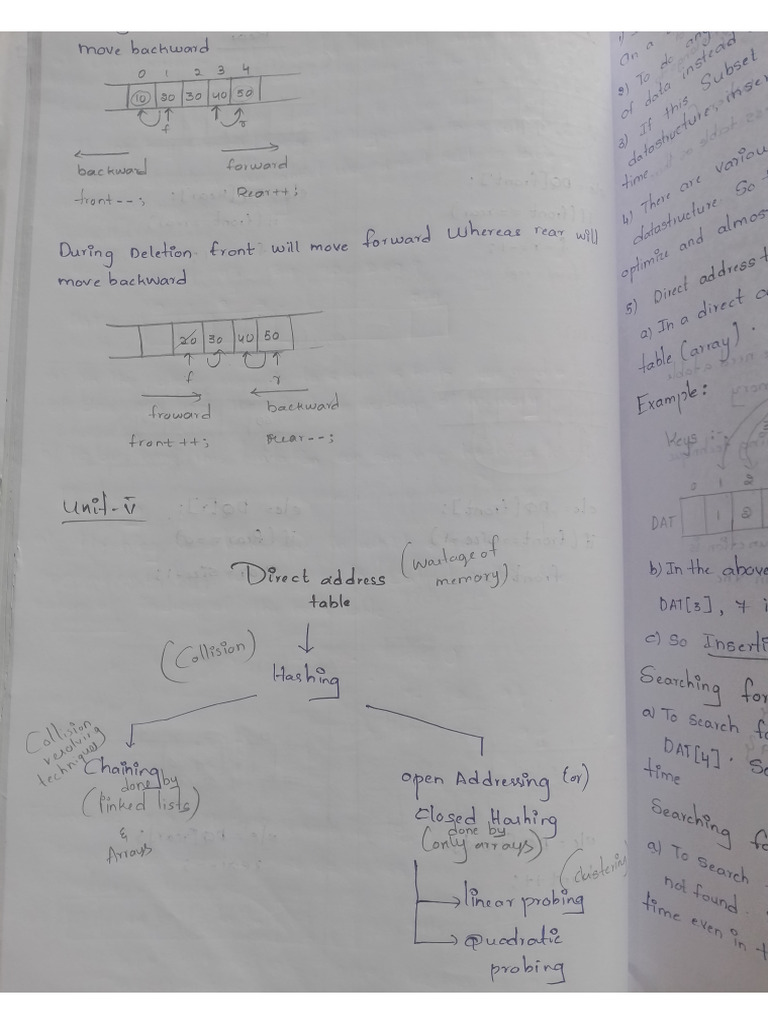 move backward
0 1 2 3 4
10 20 30 40 50
f r
backward forward
front--; Rear++;
During Deletion front will move forward whereas rear will
move backward
20 30 40 50
f r
froward backward
front ++; Rear--;
Unit-V
Direct address (wastage of
table memory)
(Collision)
Hashing
Collision
resolving
techniques
Chaining
done by
(linked lists)
&
Arrays
open Addressing (or)
Closed Hashing
done by
(only arrays)
(clustering)
linear probing
Quadratic
probing
On a
2) To do any
of data instead
3) If this Subset
datastructure, inser
time.
4) There are variou
datastructure. So t
optimize and almos
5) Direct address t
a) In a direct a
table (array).
Example:
Keys :-
0 1 2
DAT 1 2
b) In the above
DAT[3], 7 i
c) So Inserti
Searching for
a) To search fo
DAT[4]. So
time
Searching fo
a) To search
not found.
time even in t